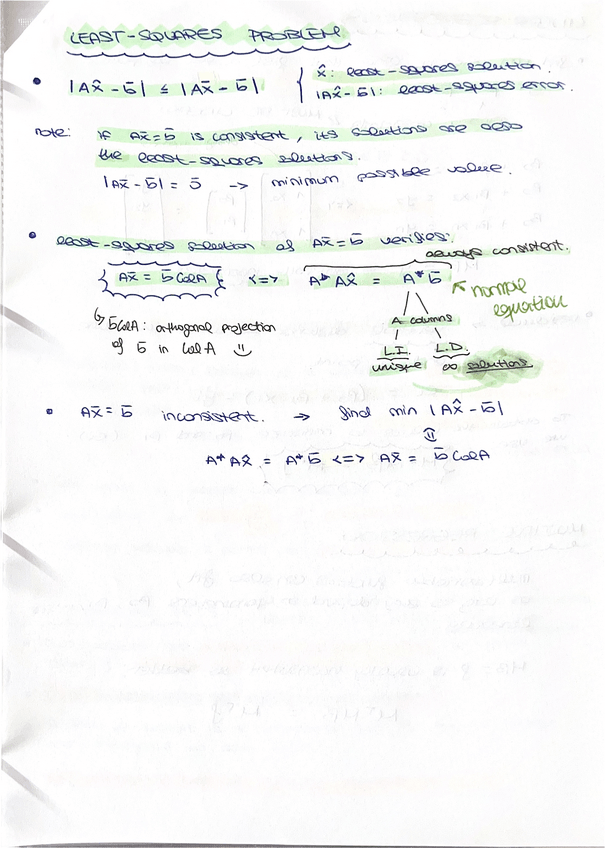 LEAST-SQUARES PROBLEM
• |Ax̂ - b̄| ≤ |Ax̄ - b̄| { x̂: least-squares solution.
|Ax̂-b̄|: least-squares error.
note: if Ax̄=b̄ is consistent, its solutions are also
the least-squares solutions.
|Ax̄ - b̄| = 0̄ -> minimum possible value.
• least-squares solution of Ax̄=b̄ verifies:
always consistent.
{ Ax̄ = b̄ColA } <=> A* Ax̂ = A* b̄
normal
equation
↳ b̄ColA: orthogonal projection
of b̄ in ColA
A columns
L.I. L.D.
unique ∞ solutions
• Ax̄ = b̄ inconsistent. → find min |Ax̂ - b̄|
A* Ax̂ = A* b̄ <=> Ax̄ = b̄ColA